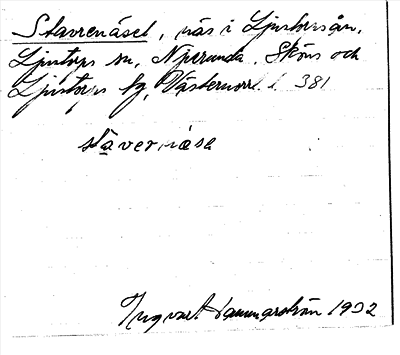 Stavrenäset, näs i Ljustorpsån,
Ljustorps sn, Njurunda, Sköns och
Ljustorps tg, Västernorrl. l. 381
stavernäse
Ingvart Hammarström 1932